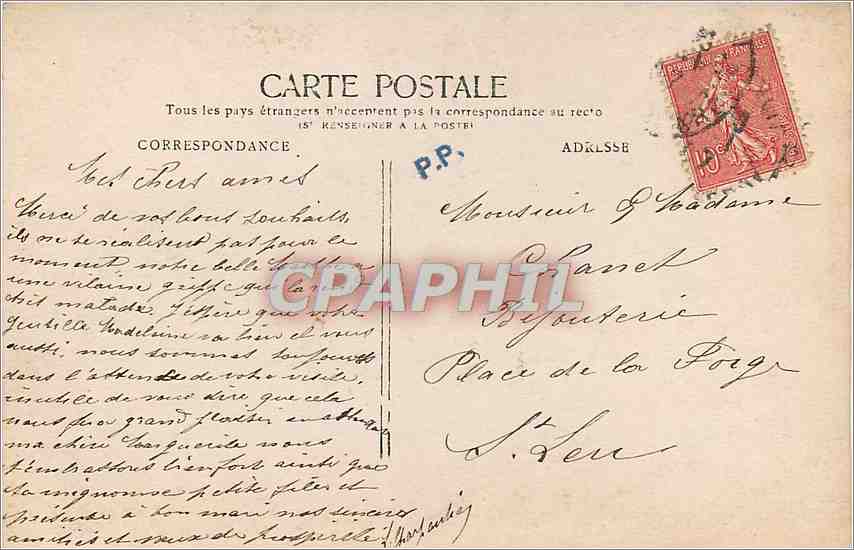 CARTE POSTALE
Tous les pays étrangers n'acceptent pas la correspondance au recto
(SE RENSEIGNER A LA POSTE)
CORRESPONDANCE
ADRESSE
P.P.
REPUBLIQUE FRANÇAISE
10c
Mes chers amis
Merci de vos bons souhaits
ils ne se réalisent pas pour le
moment notre belle
une vilaine grippe qui la rend
très malade. J'espère que votre
gentille Madeleine va bien et vous
aussi, nous sommes toujours
dans l'attende de votre visite,
inutile de vous dire que cela
nous fera grand plaisir en attendant
ma chère Marguerite nous
t'embrassons bien fort ainsi que
ta mignonne petite fille et
présente à ton mari nos sincères
amitiés et vœux de prospérité
Charpentier
Monsieur & Madame
Chanet
Bijouterie
Place de la Forge
St Leu
CPAPHIL